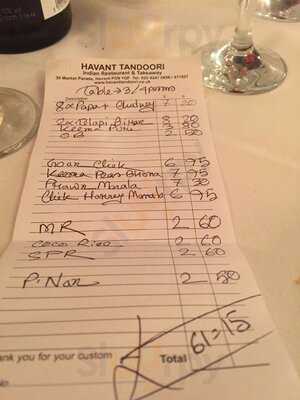 HAVANT TANDOORI
Indian Restaurant & Takeaway
www.havanttandoori.co.uk
Table 3 / 4 persons
8x Papa + Chutney 7 20
2x Telapi Bihar 8 20
Keema Puri
OB 2 50
Goan Chick 6 95
Keema Peas Bhona 7 95
Prawn Masala 7 30
Chick Honey Masala 6 95
MR 2 60
Coco Rice 2 60
SPR 2 60
P. Nan 2 50
ank you for your custom
Total 61=15